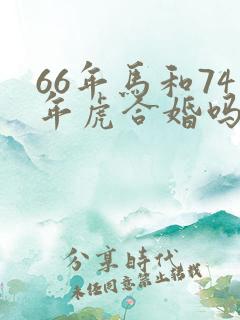 66年馬和74
年虎合婚吗
分享時代
未经同意禁止转载